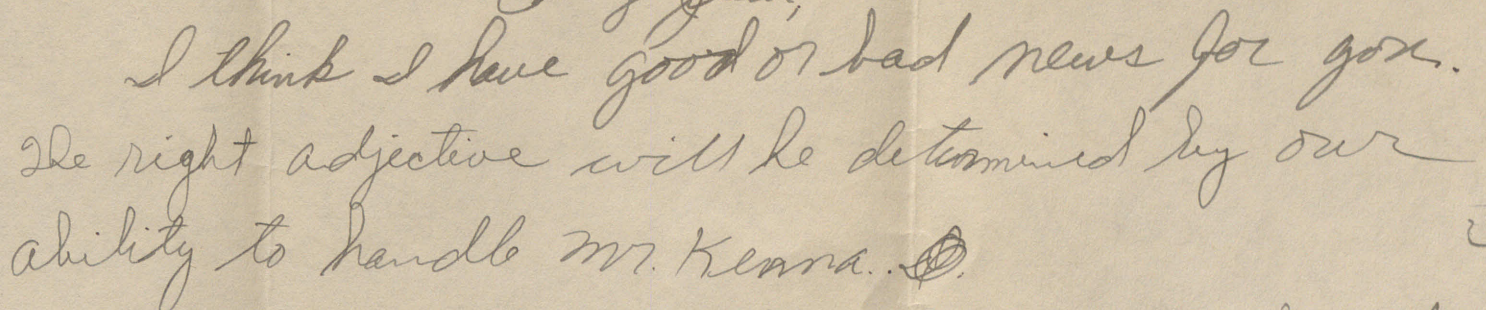 I think I have good or bad news for you.
The right adjective will be determined by our
ability to handle Mr. Kenna..